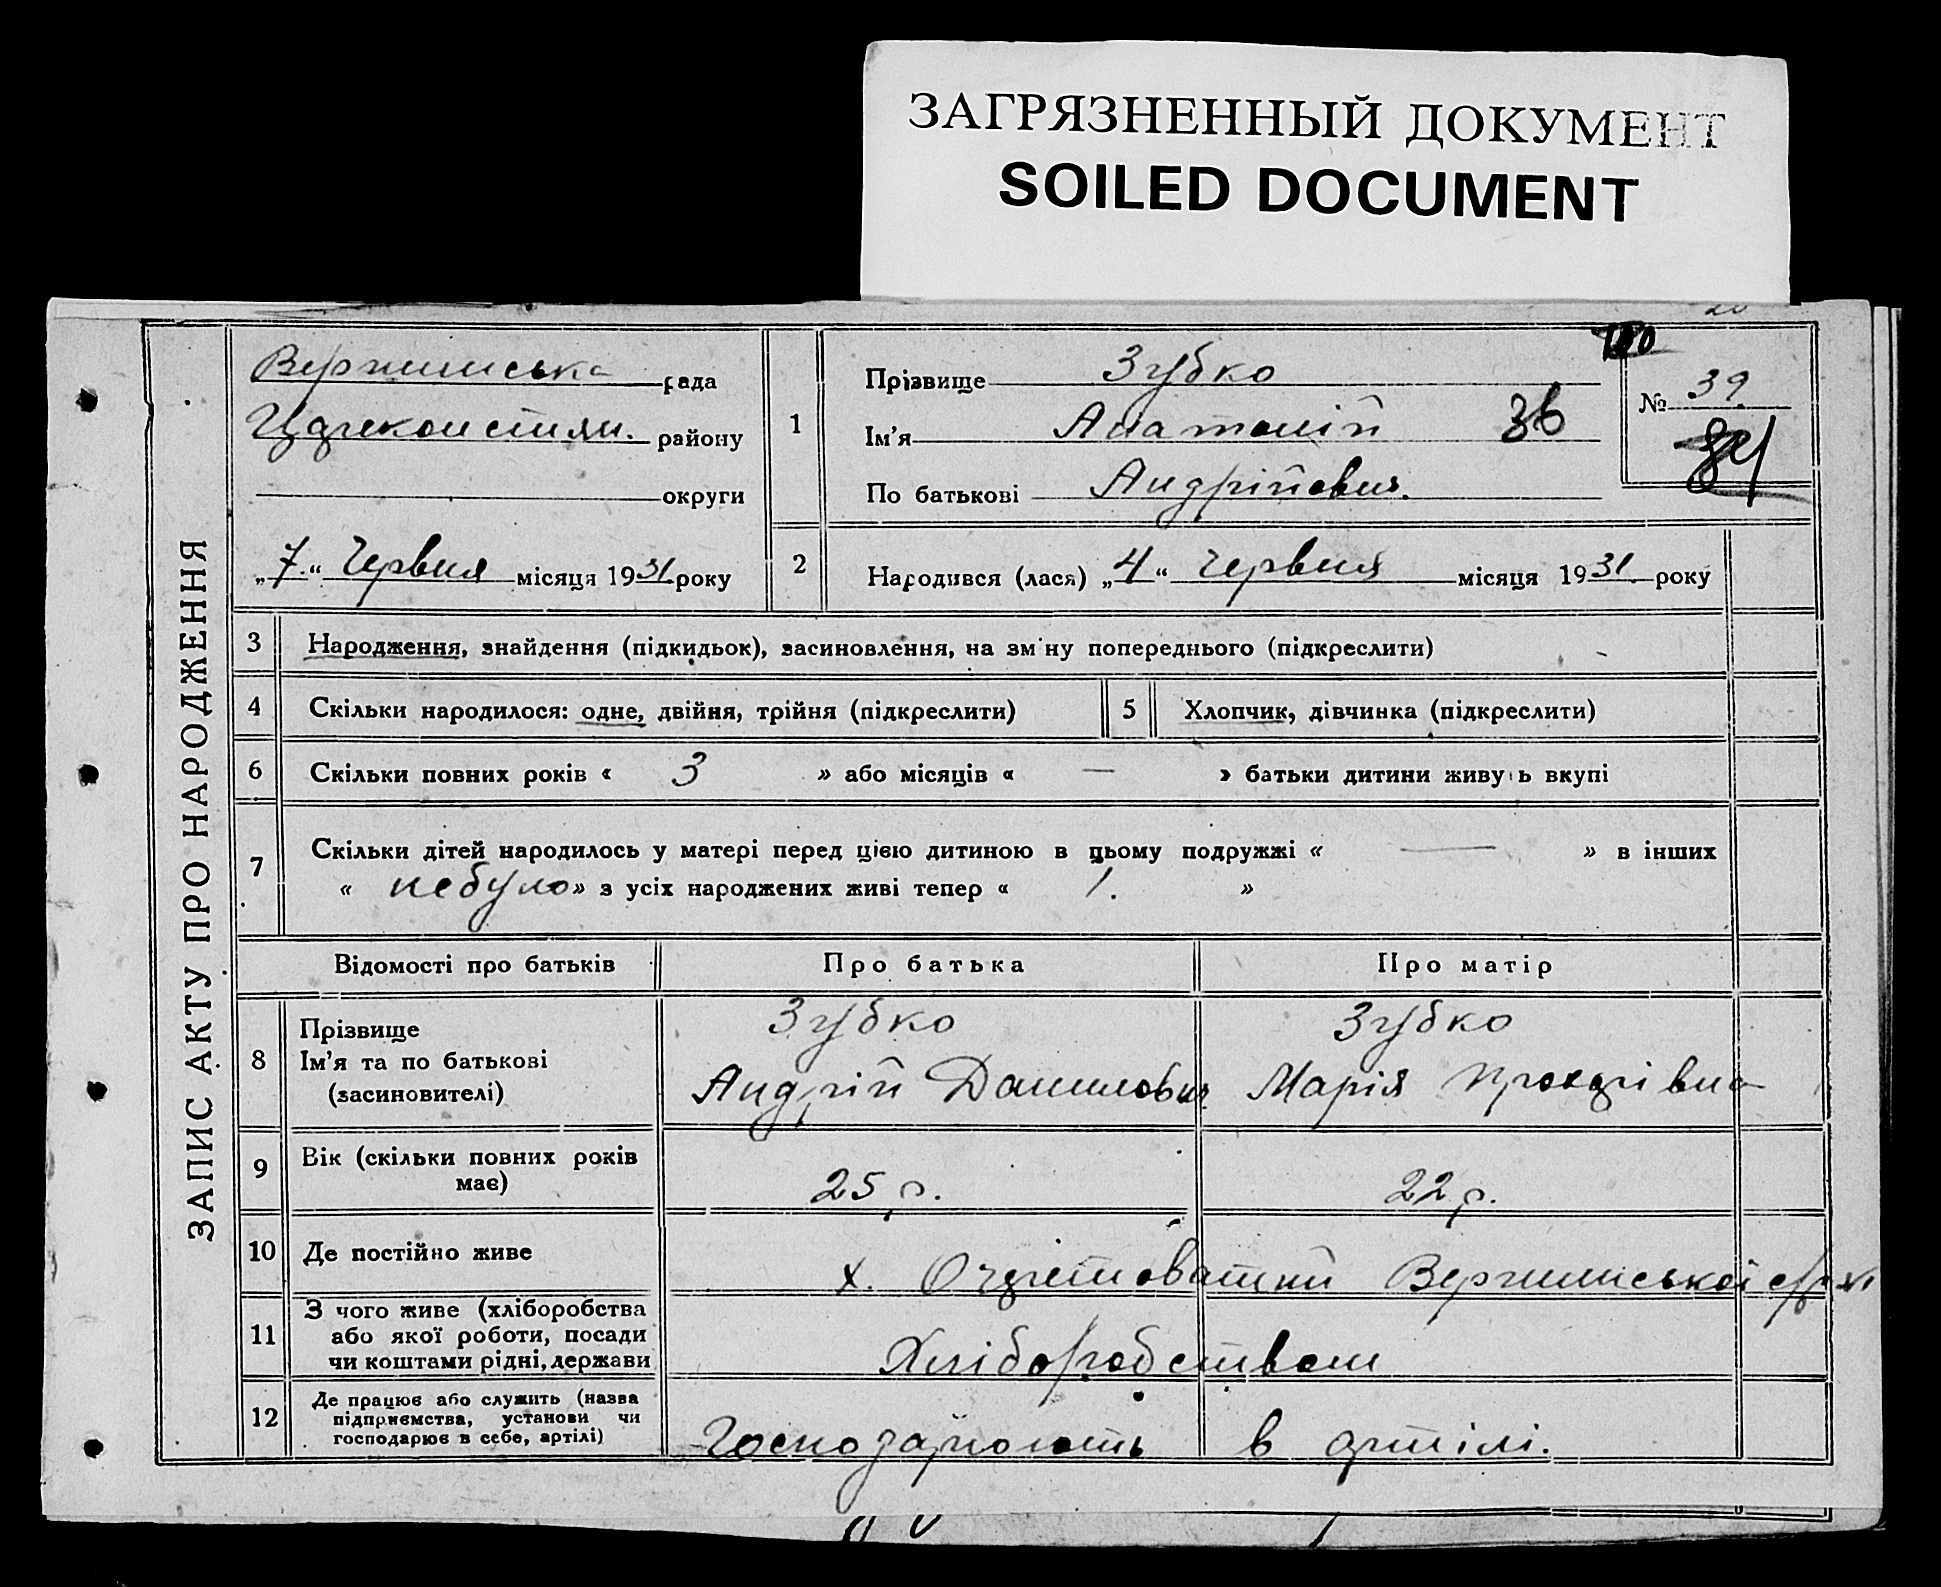 ЗАГРЯЗНЕННЫЙ ДОКУМЕНТ
SOILED DOCUMENT
ЗАПИС АКТУ ПРО НАРОДЖЕННЯ
рада
району
округи
„7.“ Червня місяця 1931 року
1
Прізвище Зубко
Ім'я Анатолій 36
По батькові Андрійович.
№ 39
84
2
Народився (лася) „4“ Червня місяця 1931. року
3 Народження, знайдення (підкидьок), засиновлення, на зміну попереднього (підкреслити)
4 Скільки народилося: одне, двійня, трійня (підкреслити)
5 Хлопчик, дівчинка (підкреслити)
6 Скільки повних років « 3 » або місяців « — » батьки дитини живуть вкупі
7 Скільки дітей народилось у матері перед цією дитиною в цьому подружжі « — » в інших
« небуло » з усіх народжених живі тепер « 1. »
Відомості про батьків Про батька Про матір
8 Прізвище Зубко Зубко
Ім'я та по батькові Андрій Данилович Марія
(засиновителі)
9 Вік (скільки повних років має) 25 р. 22 р.
10 Де постійно живе х.
11 З чого живе (хліборобства
або якої роботи, посади
чи коштами рідні, держави Хліборобством
12 Де працює або служить (назва
підприємства, установи чи
господарює в себе, артілі) Господарюють в артілі.